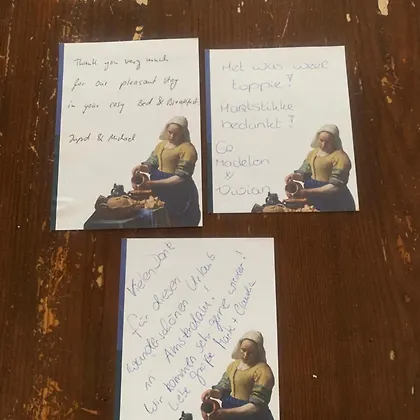 Thank you very much
for our pleasant stay
in your cosy Bed & Breakfast
& Michael
Het was weer
toppie!
Hartstikke
bedankt!
Go
Madelon
&
Vielen Dank
für diesen
wunderschönen Urlaub
in Amsterdam!
Wir kommen sehr gerne wieder!
Liebe Grüße + Claudia